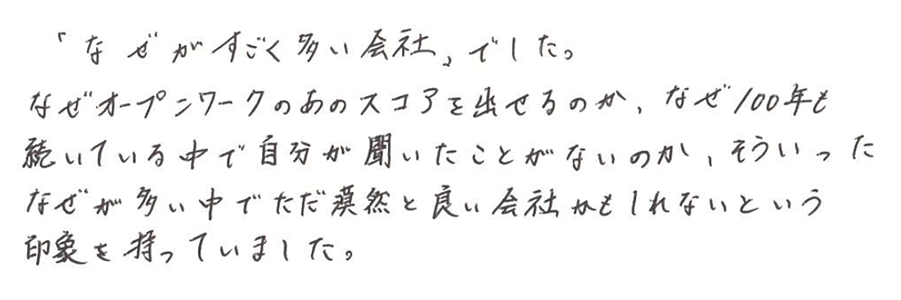 「なぜがすごく多い会社」でした。
なぜオープンワークのあのスコアを出せるのか、なぜ100年も
続いている中で自分が聞いたことがないのか、そういった
なぜが多い中でただ漠然と良い会社かもしれないという
印象を持っていました。